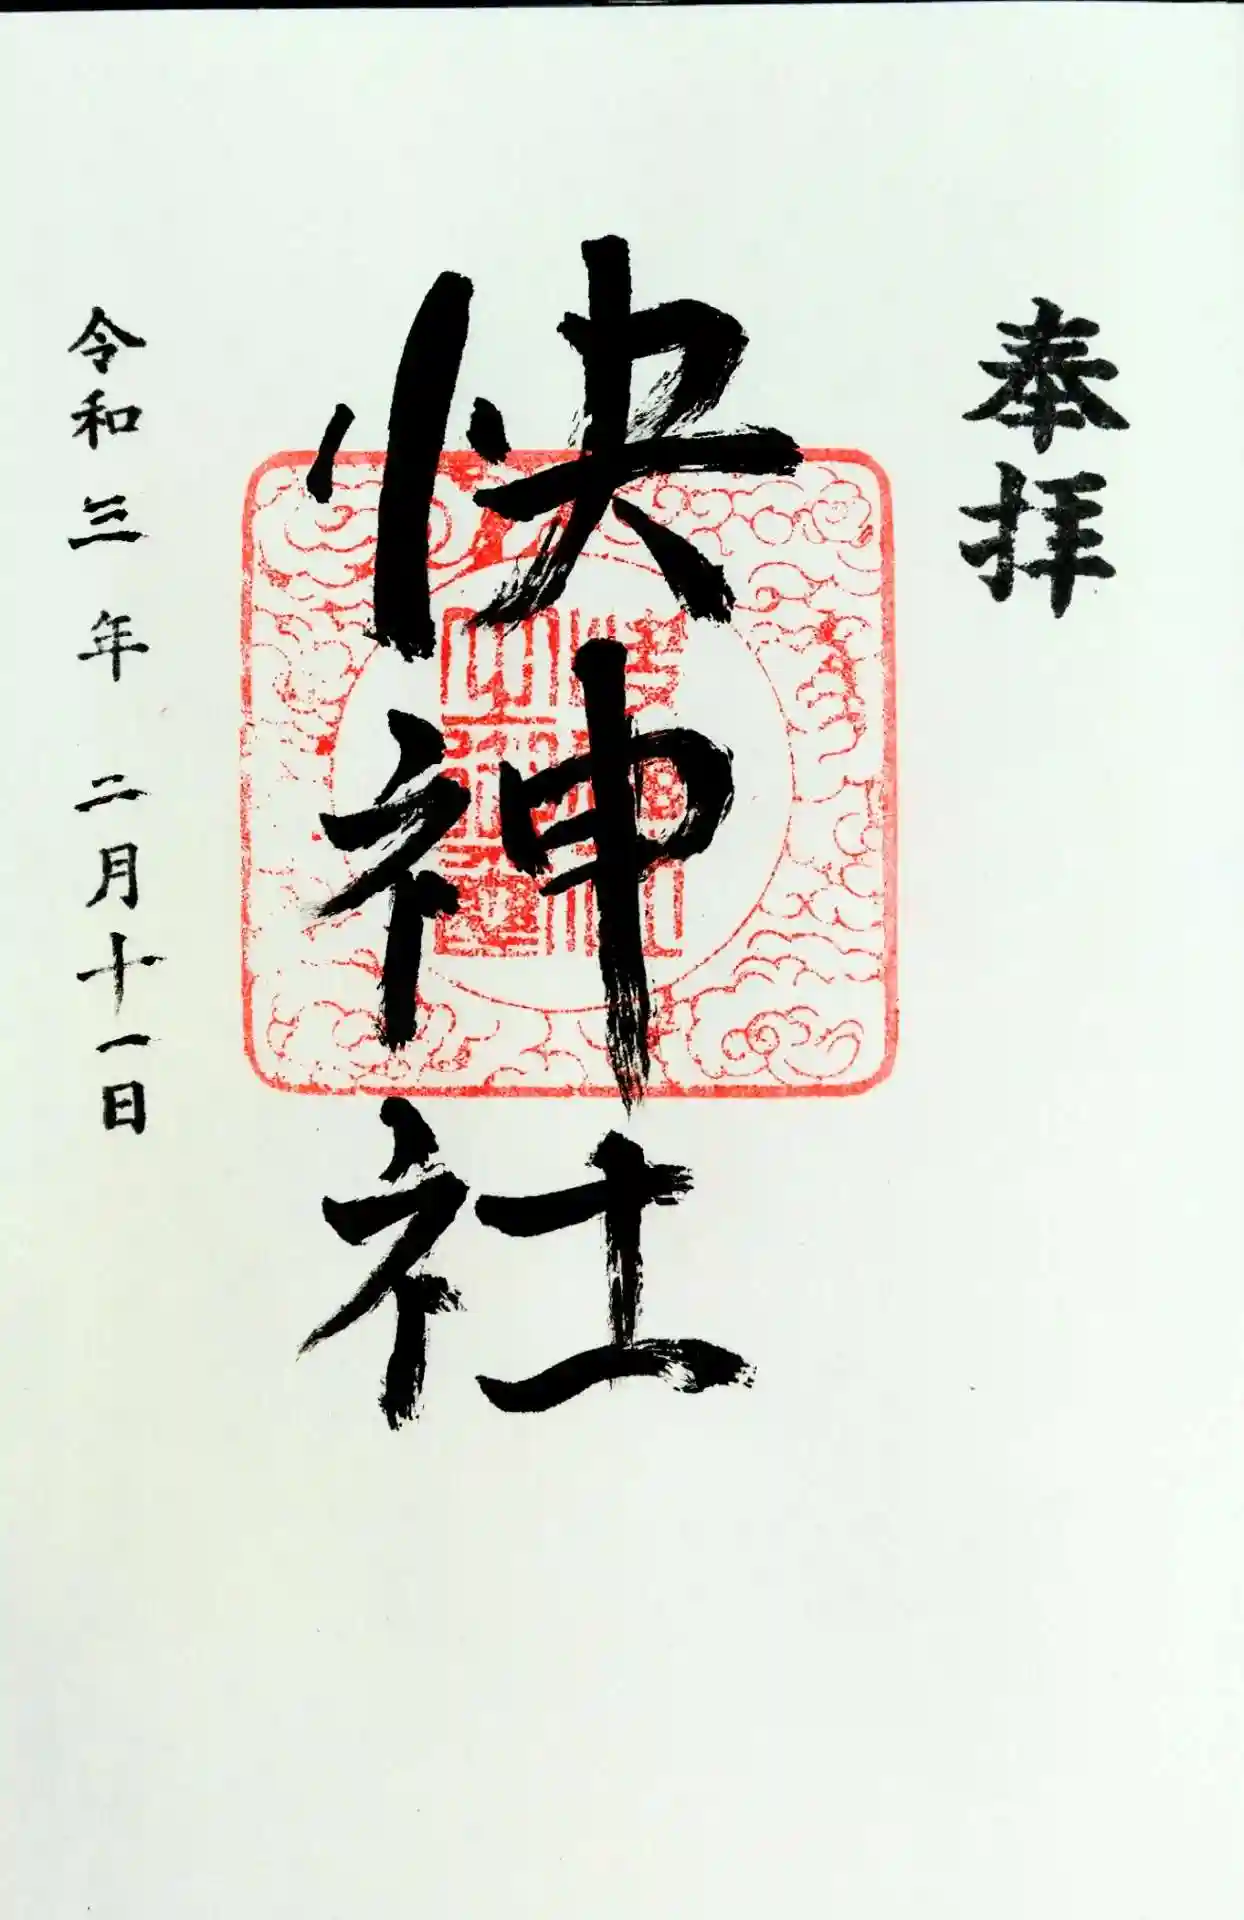 奉拝
快神社
令和三年 二月十一日